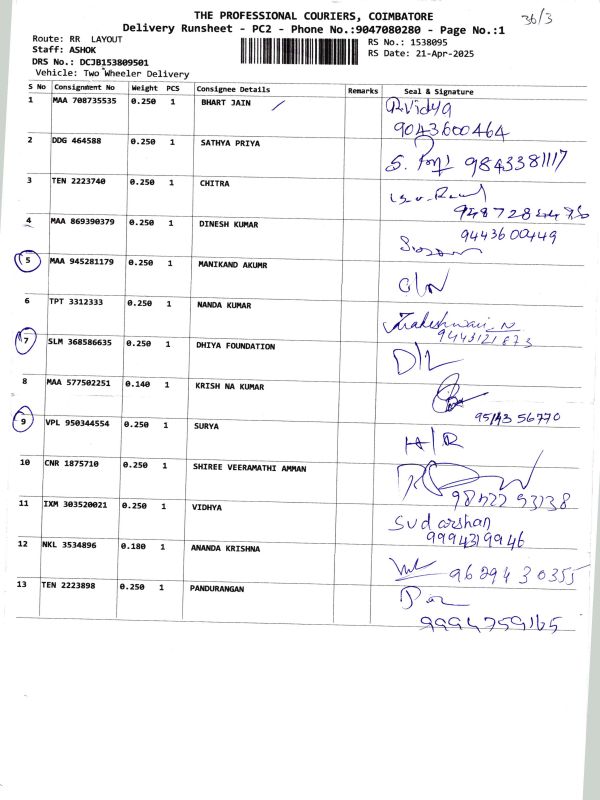 THE PROFESSIONAL COURIERS, COIMBATORE
36/3
Delivery Runsheet - PC2 - Phone No.:9047080280 - Page No.:1
Route: RR LAYOUT
RS No.: 1538095
Staff: ASHOK
RS Date: 21-Apr-2025
DRS No.: DCJB153809501
Vehicle: Two Wheeler Delivery
S No Consignment No Weight PCS Consignee Details Remarks Seal & Signature
1 MAA 708735535 0.250 1 BHART JAIN R.Vidya
9043600464
2 DDG 464588 0.250 1 SATHYA PRIYA 9843381117
3 TEN 2223740 0.250 1 CHITRA
4 MAA 869390379 0.250 1 DINESH KUMAR 9443600449
5 MAA 945281179 0.250 1 MANIKAND AKUMR
6 TPT 3312333 0.250 1 NANDA KUMAR
9443121873
7 SLM 368586635 0.250 1 DHIYA FOUNDATION D/L
8 MAA 577502251 0.140 1 KRISH NA KUMAR
9514356770
9 VPL 950344554 0.250 1 SURYA H/R
10 CNR 1875710 0.250 1 SHIREE VEERAMATHI AMMAN
11 IXM 303520021 0.250 1 VIDHYA Sudarshan
9994319946
12 NKL 3534896 0.180 1 ANANDA KRISHNA 9629430355
13 TEN 2223898 0.250 1 PANDURANGAN
9994759165